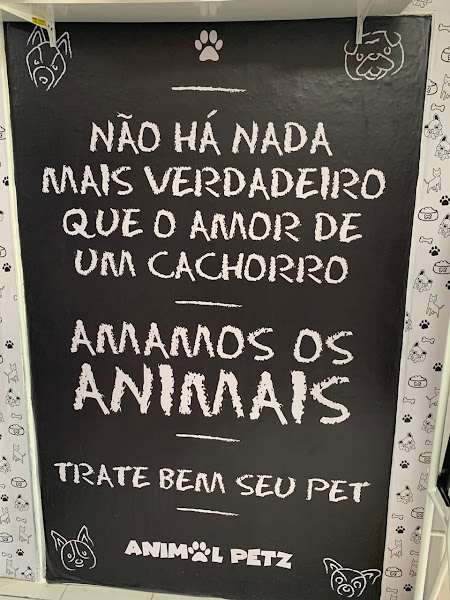 NÃO HÁ NADA
MAIS VERDADEIRO
QUE O AMOR DE
UM CACHORRO
AMAMOS OS
ANIMAIS
TRATE BEM SEU PET
ANIMAL PETZ